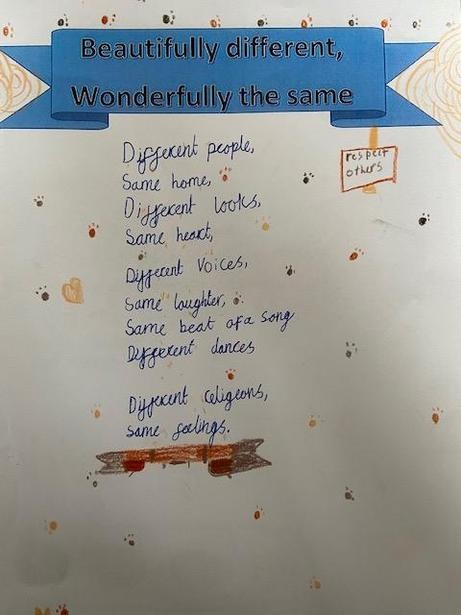 Beautifully different,
Wonderfully the same
respect
others
Different people,
Same home,
Different looks,
Same heart,
Different Voices,
Same laughter,
Same beat of a song
Different dances
Different religeons,
Same feelings.